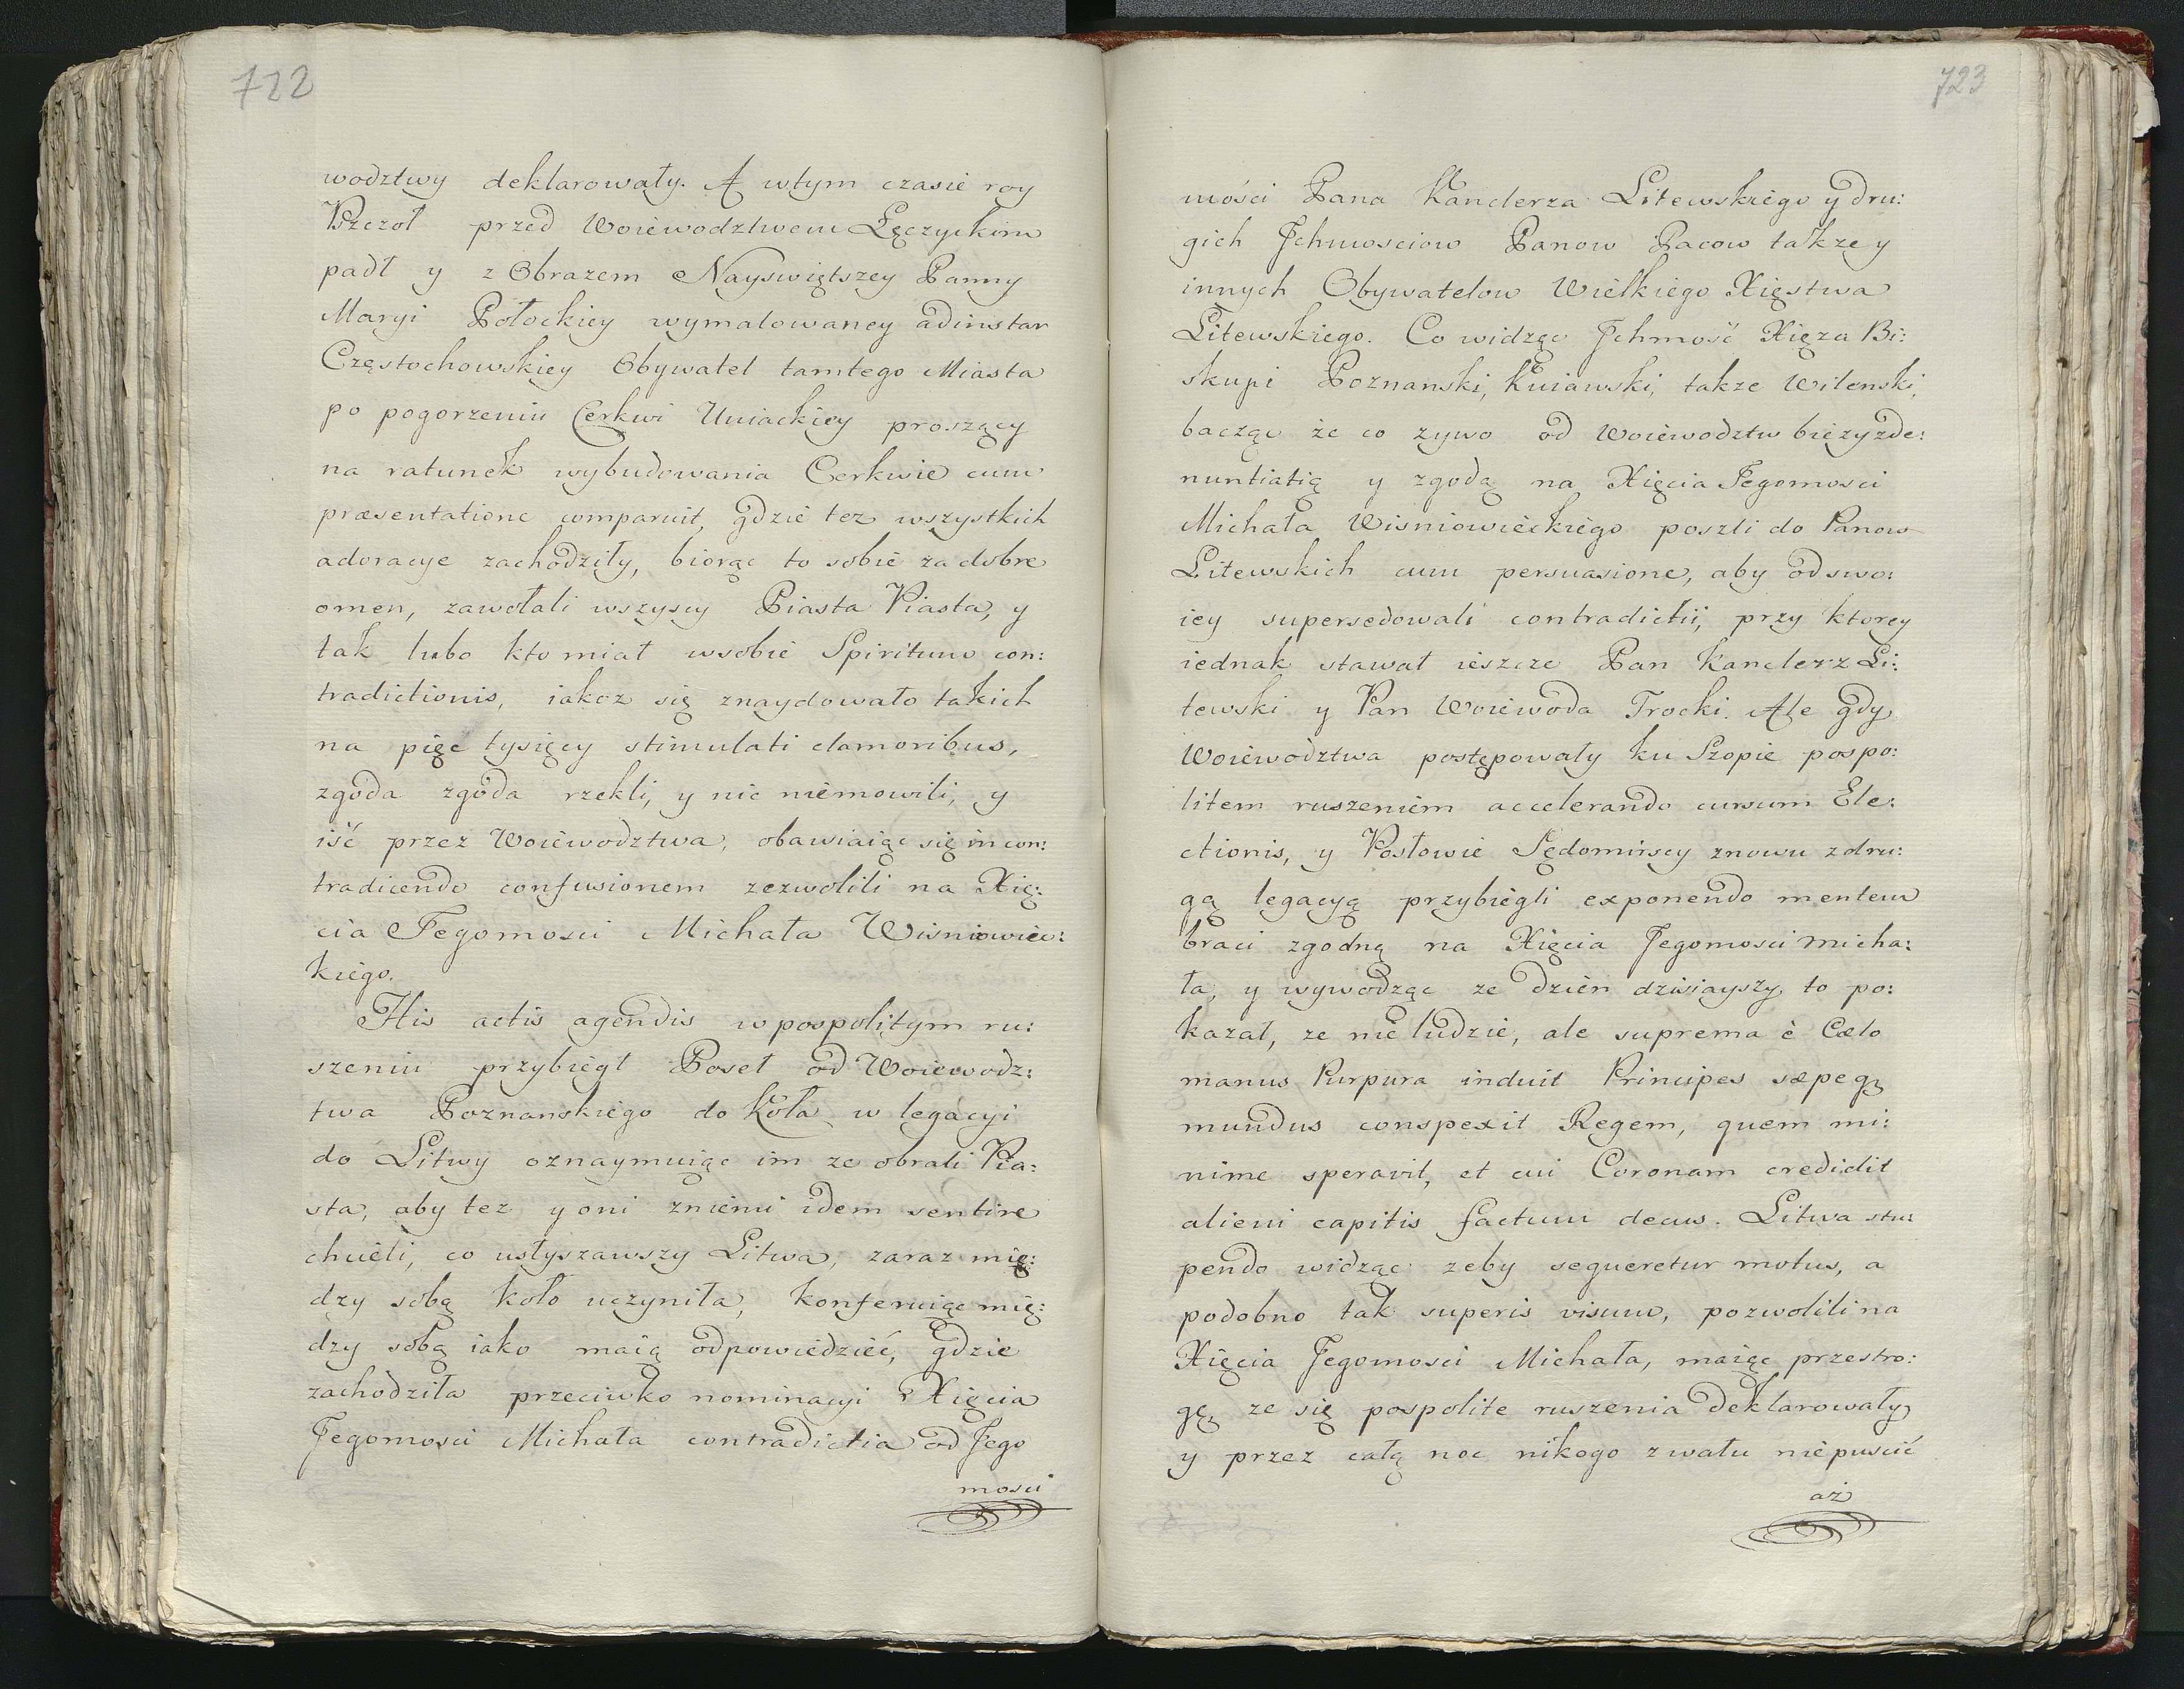 722
wodztwy deklarowały. A wtym czasie roy
Pszczoł przed Woiewodztwem Łęczyckim
padł y z Obrazem Nayswiętszey Panny
Maryi Połockiey wymalowaney adinstar
Częstochowskiey Obywatel tamtego Miasta
po pogorzeniu Cerkwi Uniackiey proszący
na ratunek wybudowania Cerkwie cum
præsentatione comparuit, gdzie tez wszystkich
adoracye zachodziły, biorąc to sobie za dobre
omen, zawołali wszyscy Piasta Piasta, y
tak lubo kto miał wsobie Spiritum con:
tradictionis, iakoz się znaydowało takich
na pięc tysięcy stimulati clamoribus,
zgoda zgoda rzekli, y nic niemowili, y
iść przez Woiewodztwa, obawiaiąc się in con:
tradicendo confusionem zezwolili na Xię:
cia Jegomosci Michała Wisniowiec:
kiego.
His actis agendis w pospolitym ru:
szeniu przybiegł Poseł od Woiewodz:
twa Poznanskiego do Koła w legacyi
do Litwy oznaymuiąc im ze obrali Pia:
sta, aby tez y oni zniemi idem sentire
chcieli, co usłyszawszy Litwa, zaraz mię:
dzy sobą koło uczyniła, konferuiąc mię:
dzy sobą iako maią odpowiedzieć, gdzie
zachodziła przeciwko nominacyi Xięcia
Jegomosci Michała contradictia od Jego
mosci
723
mości Pana Kanclerza Litewskiego y dru:
gich Jchmosciow Panow Pacow takze y
innych Obywatelow Wielkiego Xięstwa
Litewskiego. Co widząc Jchmość Xięza Bi:
skupi Poznanski, Kuiawski, takze Wilenski,
bacząc że co zywo od Woiewodztw biezy z de:
nuntiatią y zgodą na Xięcia Jegomosci
Michała Wisniowieckiego poszli do Panow
Litewskich cum persuasione, aby od swo:
iey supersedowali contradictii, przy ktorey
iednak stawał ieszcze Pan Kanclerz Li:
tewski y Pan Woiewoda Trocki. Ale gdy
Woiewodztwa postępowały ku Szopie pospo:
litem ruszeniem accelerando cursum Ele:
ctionis, y Posłowie Sędomirscy znowu z dru:
gą legacyą przybiegli exponendo mentem
braci zgodną na Xięcia Jegomosci Micha:
ła, y wywodząc ze dzien dzisiayszy to po:
kazał, ze nie ludzie, ale suprema è Cælo
manus Purpura induit Principes sæpeq
mundus conspexit Regem, quem mi:
nime speravit, et cui Coronam credidit
alieni capitis factum decus. Litwa stu:
pendo widząc zeby sequeretur motus, a
podobno tak superis visum, pozwolili na
Xięcia Jegomosci Michała, maiąc przestro:
gę, ze się pospolite ruszenia deklarowały
y przez całą noc nikogo z wału niepuscić
aż